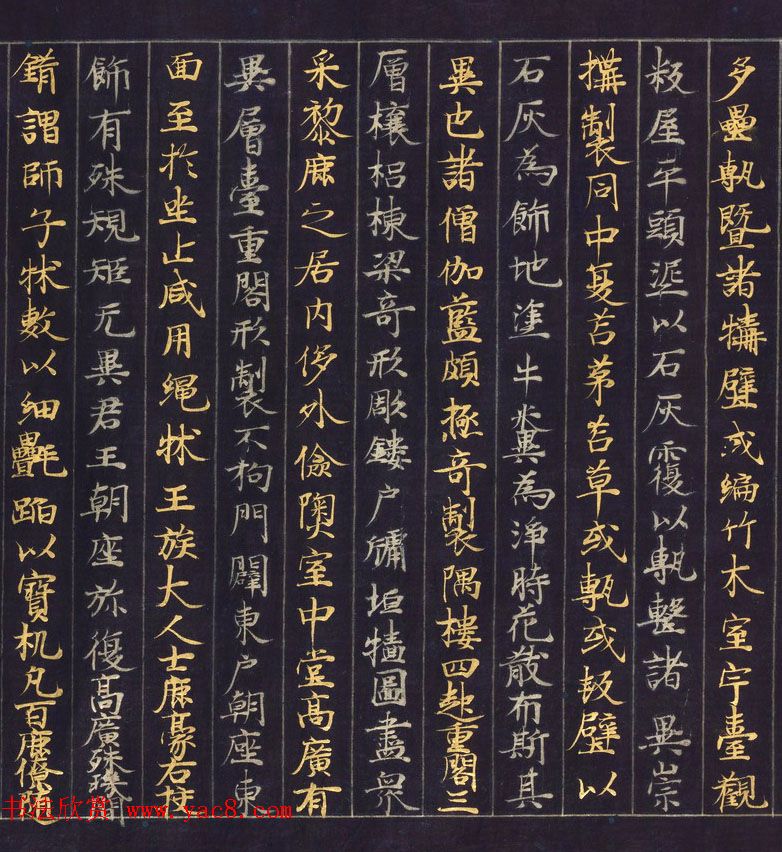 多疊甎暨諸牆壁或編竹木室宇臺觀
板屋平頭埿以石灰覆以甎墼諸異崇
搆製同中夏苫茅苫草或甎或板壁以
石灰為飾地塗牛糞為淨時花散布斯其
異也諸僧伽藍頗極奇製隅樓四起重閣三
層榱梠棟梁奇形彫鏤户牖垣牆圖畫衆
采黎庶之居内侈外儉隩室中堂高廣有
異層臺重閣形製不拘門闢東户朝座東
面至於坐止咸用繩牀王族大人士庶豪右投
飾有殊規矩无異君王朝座弥復高廣珠璣間
錯謂師子牀敷以細㲲蹈以寶机凡百庶僚隨
书法欣赏 www.yac8.com